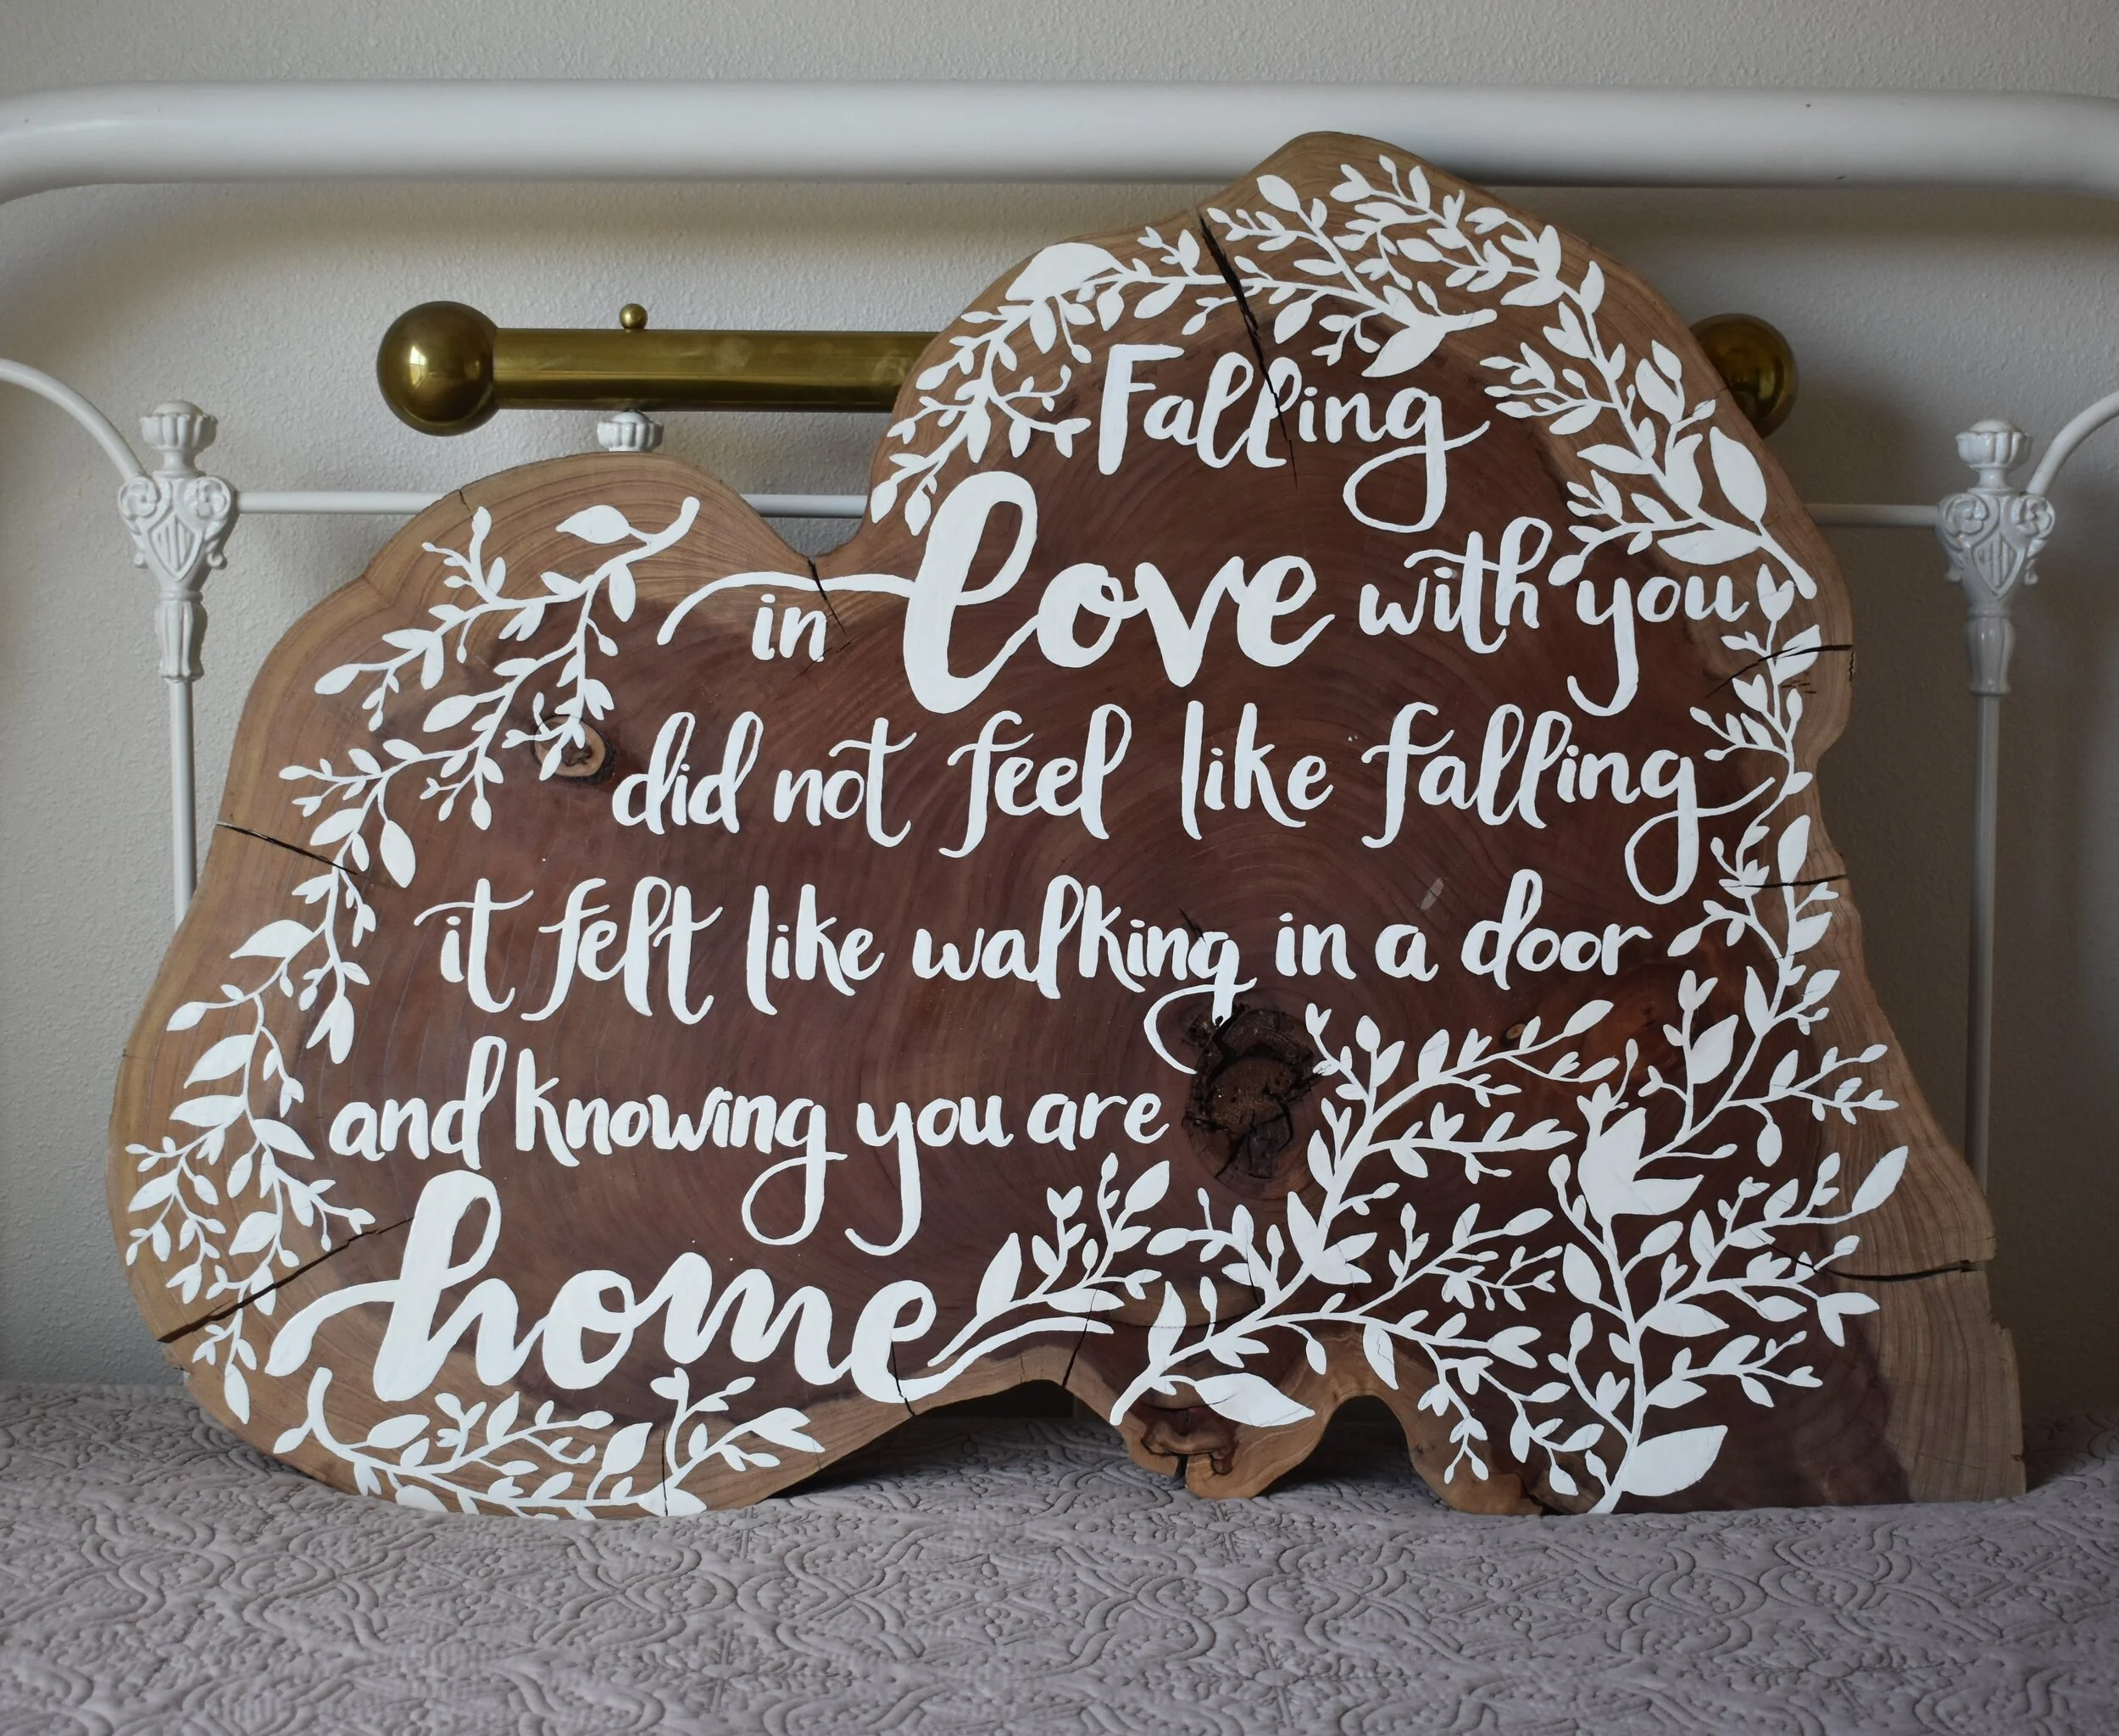 Falling
in love with you
did not feel like falling
it felt like walking in a door
and knowing you are
home